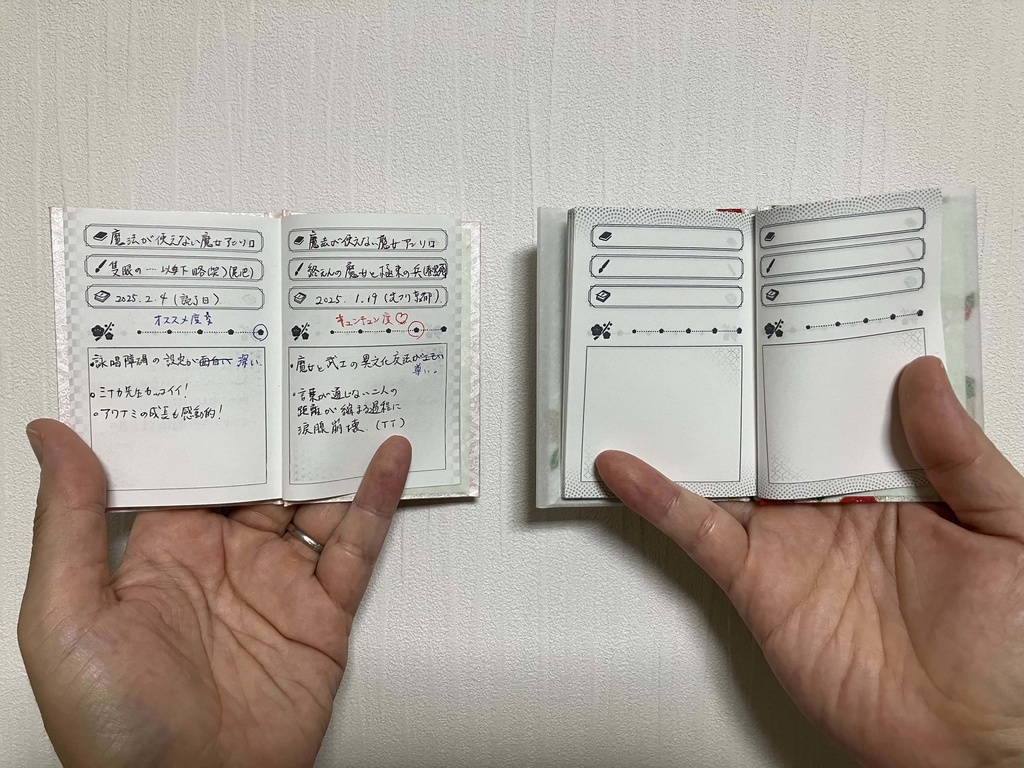 魔法が使えない魔女アンソロ
隻眼の……以下略(笑)
2025.2.4 (読了日)
オススメ度
詠唱障碍の設定が面白い 深い
ミナカ先生もカッコイイ!
アワナミの成長も感動的!
魔法が使えない魔女アンソロ
魔女と極東の兵
2025.1.19 (文フリ京都)
キュンキュン度♡
魔女と武士の異文化交流がエモい
尊い。
言葉が通じない二人の
距離が縮まる過程に
涙腺崩壊 (TT)